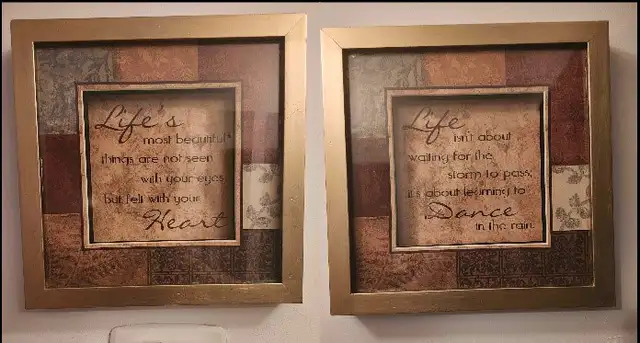 Life's
most beautiful
things are not seen
with your eyes
but felt with your
Heart
Life
isn't about
waiting for the
storm to pass;
it's about learning to
Dance
in the rain.